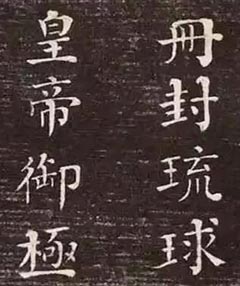 冊封琉球
皇帝御極